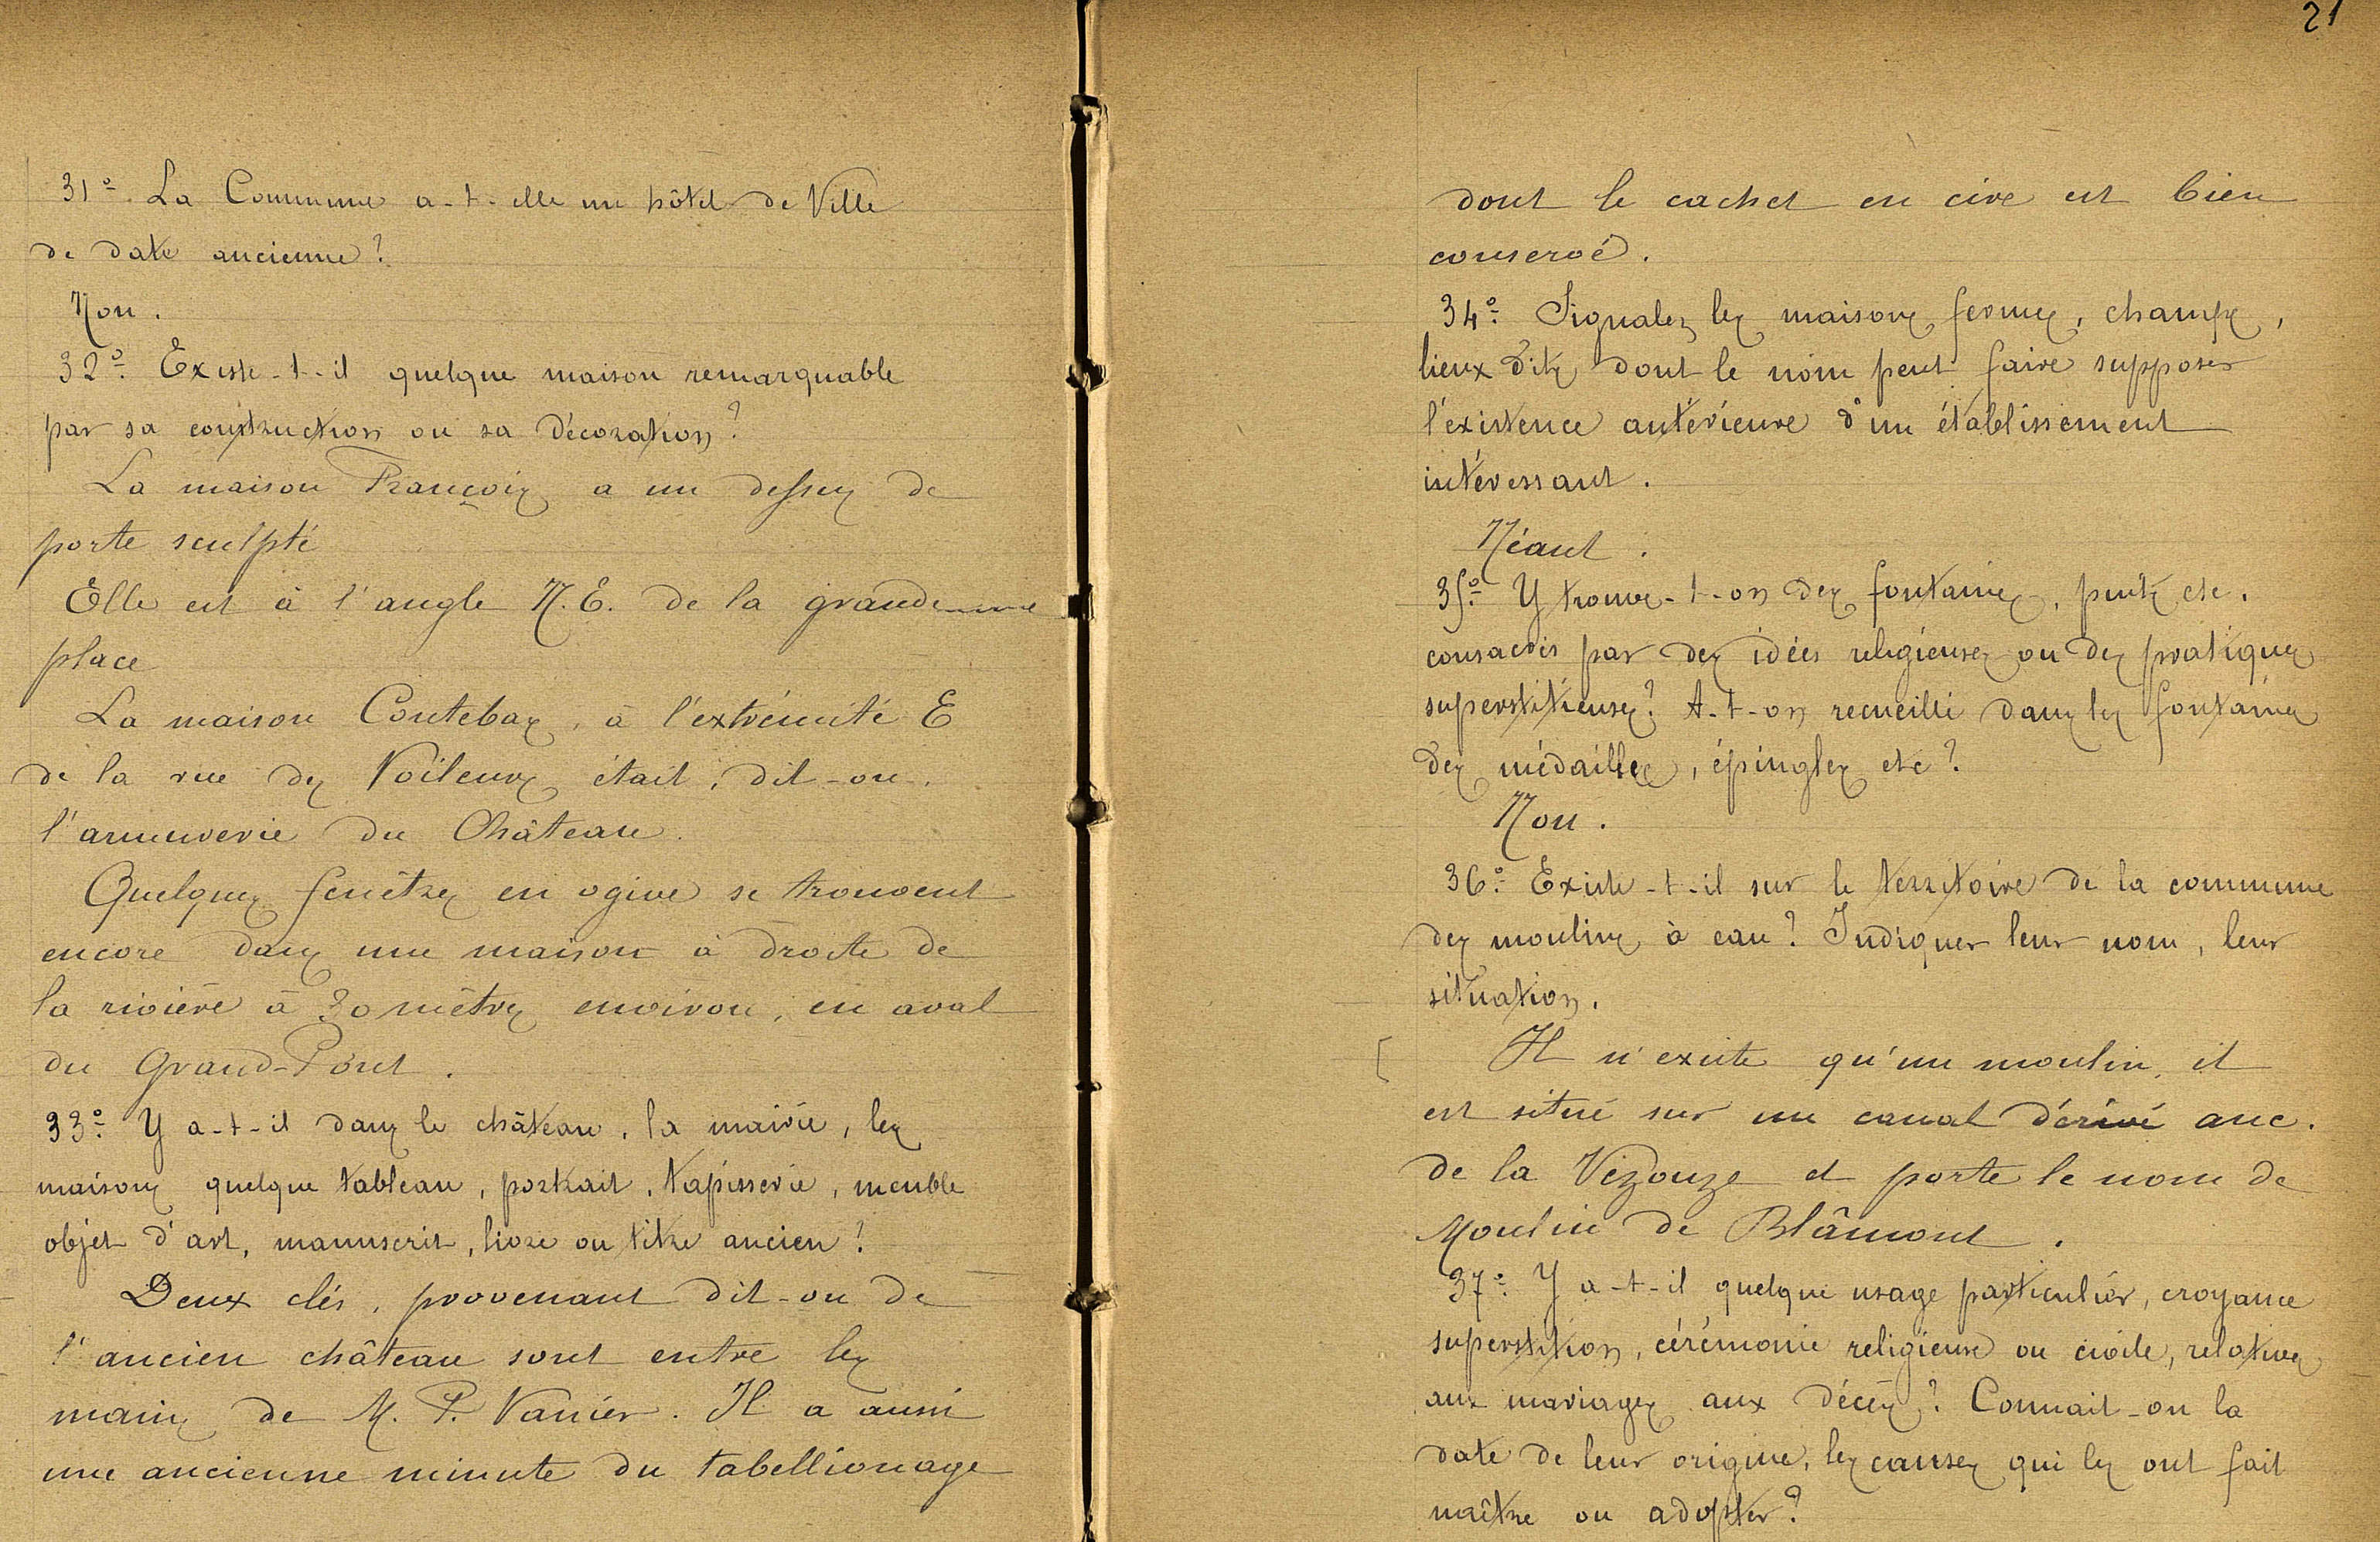 31º. La Commune a-t-elle un hôtel de Ville
de date ancienne?
Non.
32º. Existe-t-il quelque maison remarquable
par sa construction ou sa décoration?
La maison François a un dessus de
porte sculpté
Elle est à l'angle N.E. de la grande
place
La maison Contebas, à l'extrémité E
de la rue des Voileurs était, dit-on,
l'armurerie du Château.
Quelques fenêtres en ogive se trouvent
encore dans une maison à droite de
la rivière à 30 mètres environ, en aval
du Grand-Pont.
33º. Y a-t-il dans le château, la mairie, les
maisons quelque tableau, portrait, tapisserie, meuble
objet d'art, manuscrit, livre ou titre ancien?
Deux clés, provenant dit-on de
l'ancien château sont entre les
mains de M. P. Vanier. Il a aussi
une ancienne minute du tabellionage
21
dont le cachet en cire est bien
conservé.
34º. Signalez les maisons fermes, champs,
lieux dits dont le nom peut faire supposer
l'existence antérieure d'un établissement
intéressant.
Néant.
35º. Y trouve-t-on des fontaines, puits etc.
consacrés par des idées religieuses ou des pratiques
superstitieuses? A-t-on recueilli dans les fontaines
des médailles, épingles etc?
Non.
36º. Existe-t-il sur le territoire de la commune
des moulins à eau? Indiquer leur nom, leur
situation.
[ Il n'existe qu'un moulin, il
est situé sur un canal dérivé anc.
de la Vezouze et porte le nom de
Moulin de Blâmont.
37º. Y a-t-il quelque usage particulier, croyance
superstition, cérémonie religieuse ou civile, relatives
aux mariages aux décès? Connait-on la
date de leur origine, les causes qui les ont fait
naître ou adopter?